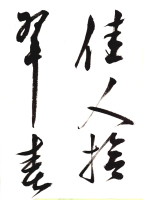 佳人拾
翠春